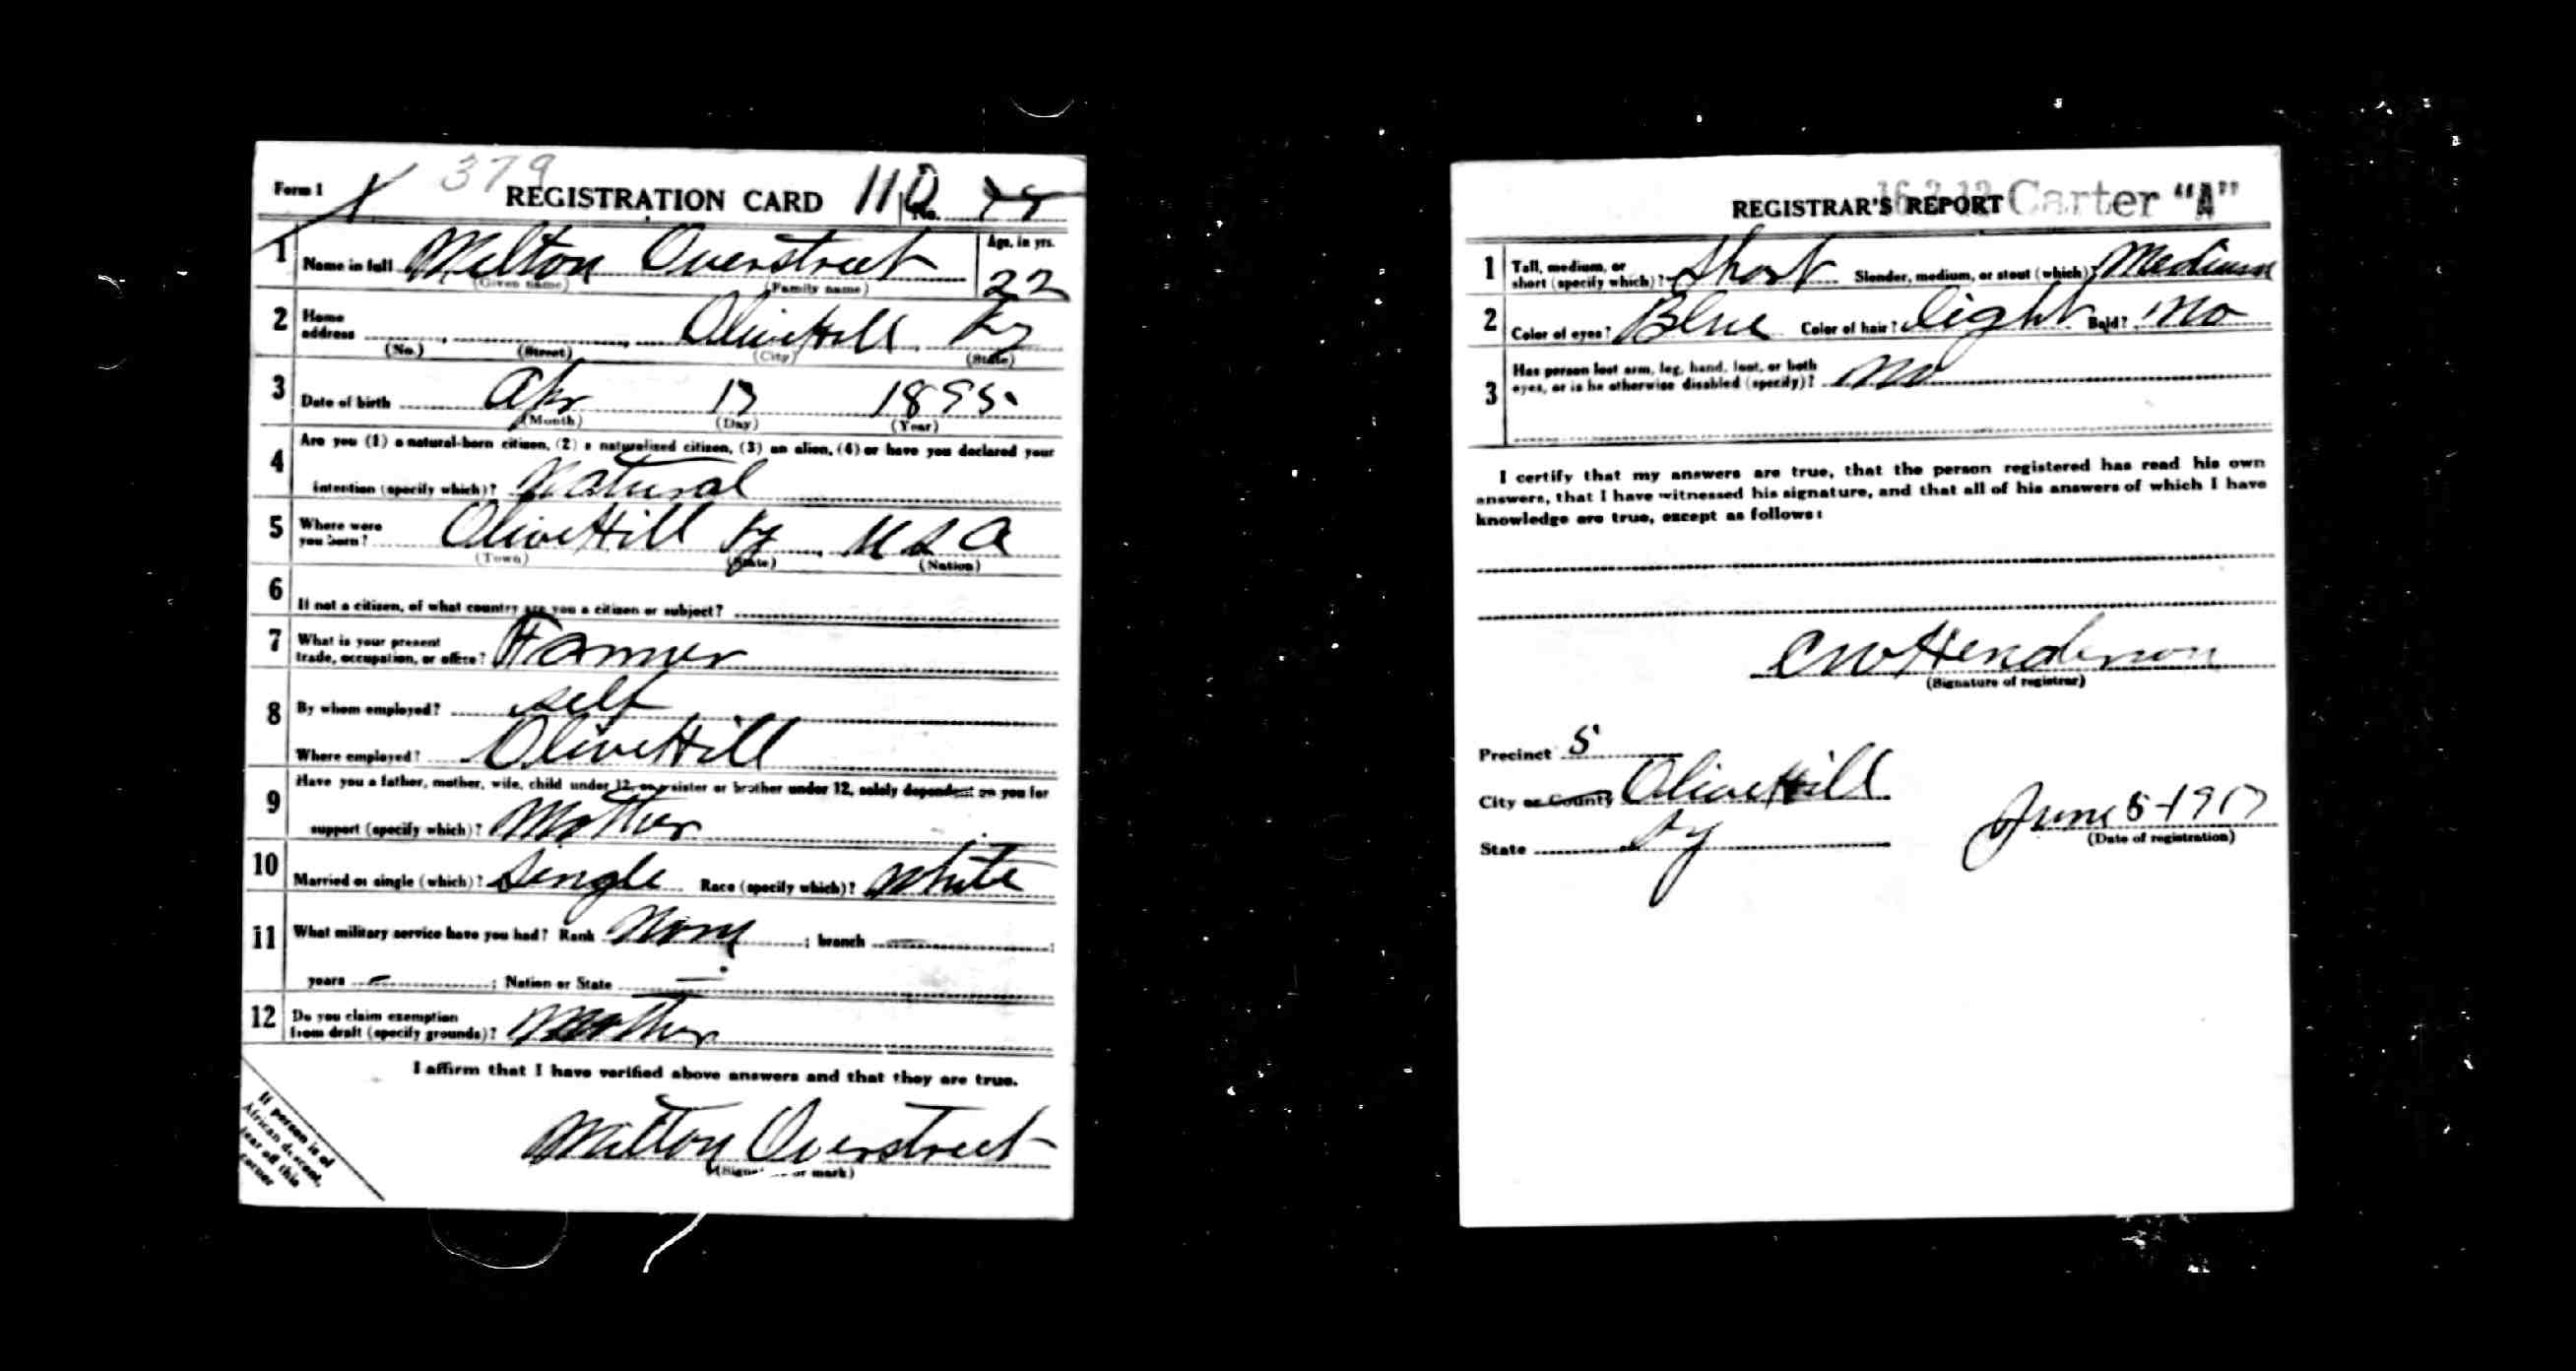 Form 1 379 REGISTRATION CARD 110 No.
1 Name in full Milton Overstreet Age, in yrs. 22
(Given name) (Family name)
2 Home address Olive Hill Ky
(No.) (Street) (City) (State)
3 Date of birth Apr 13 1895
(Month) (Day) (Year)
4 Are you (1) a natural-born citizen, (2) a naturalized citizen, (3) an alien, (4) or have you declared your
intention (specify which)? Natural
5 Where were you born? Olive Hill Ky U S A
(Town) (State) (Nation)
6 If not a citizen, of what country are you a citizen or subject?
7 What is your present trade, occupation, or office? Farmer
8 By whom employed? self
Where employed? Olive Hill
9 Have you a father, mother, wife, child under 12, or a sister or brother under 12, solely dependent on you for
support (specify which)? Mother
10 Married or single (which)? Single Race (specify which)? White
11 What military service have you had? Rank None ; branch — ;
years — ; Nation or State —
12 Do you claim exemption from draft (specify grounds)? Mother
I affirm that I have verified above answers and that they are true.
Milton Overstreet
(Signature or mark)
If person is of
African descent,
tear off this
corner
REGISTRAR'S REPORT 16-2-12 Carter "A"
1 Tall, medium, or short (specify which)? Short Slender, medium, or stout (which)? Medium
2 Color of eyes? Blue Color of hair? light Bald? No
3 Has person lost arm, leg, hand, foot, or both
eyes, or is he otherwise disabled (specify)? No
I certify that my answers are true, that the person registered has read his own
answers, that I have witnessed his signature, and that all of his answers of which I have
knowledge are true, except as follows:
C W Henderson
(Signature of registrar)
Precinct 5
City or County Olive Hill
State Ky
June 5-1917
(Date of registration)